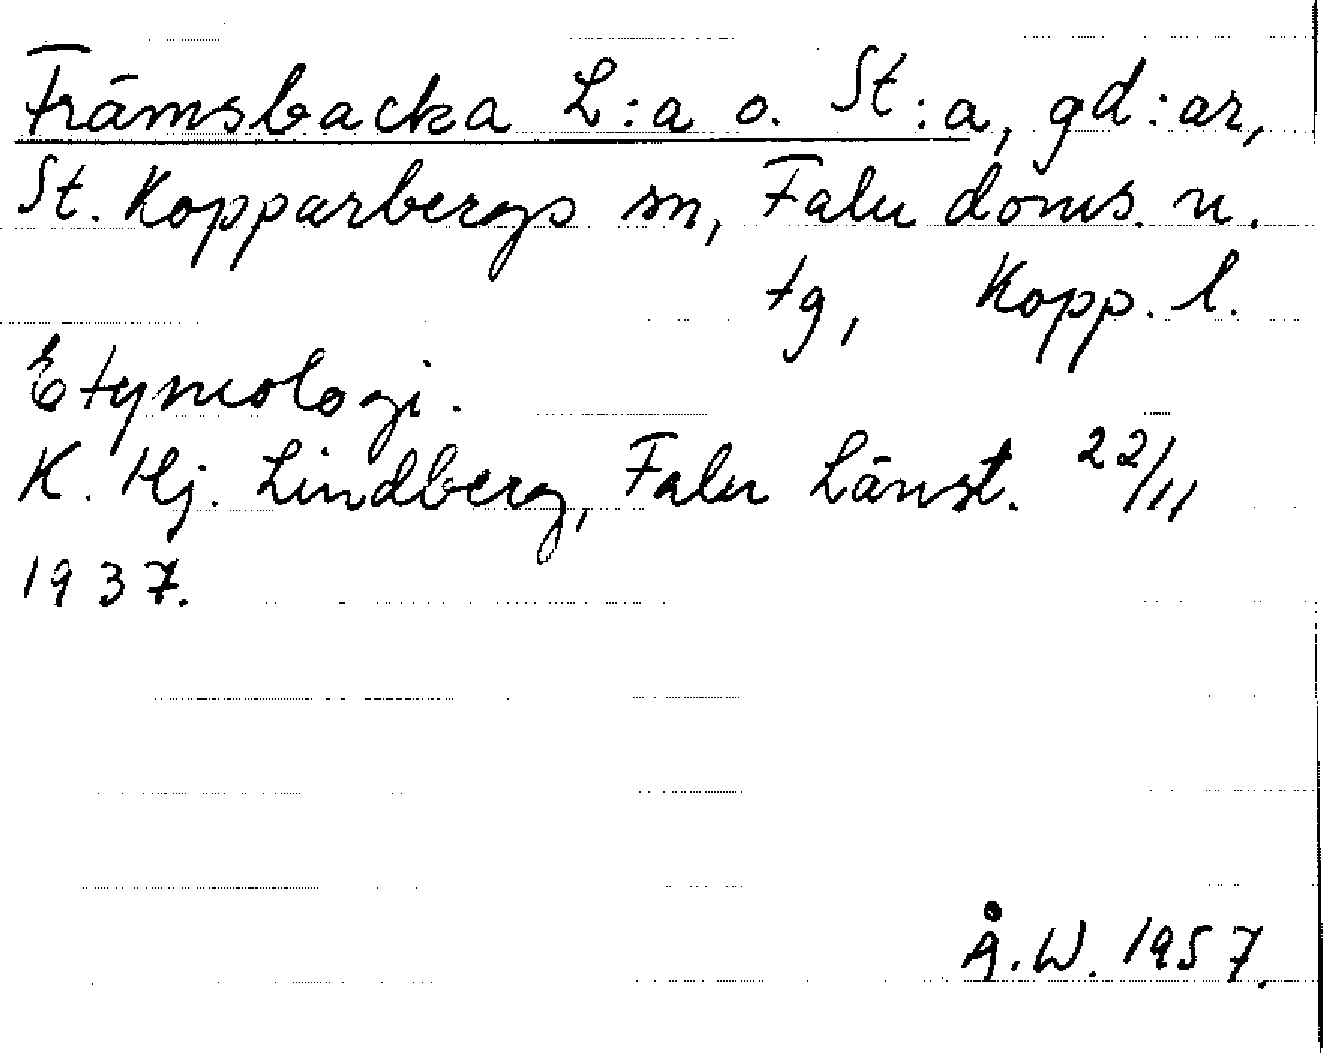 Främsbacka L:a o. St:a, gd:ar,
St. Kopparbergs sn, Falu doms. u.
tg, Kopp. l.
Etymologi.
K. Hj. Lindberg, Falu Länst. 22/11
1937.
Å.W. 1957.